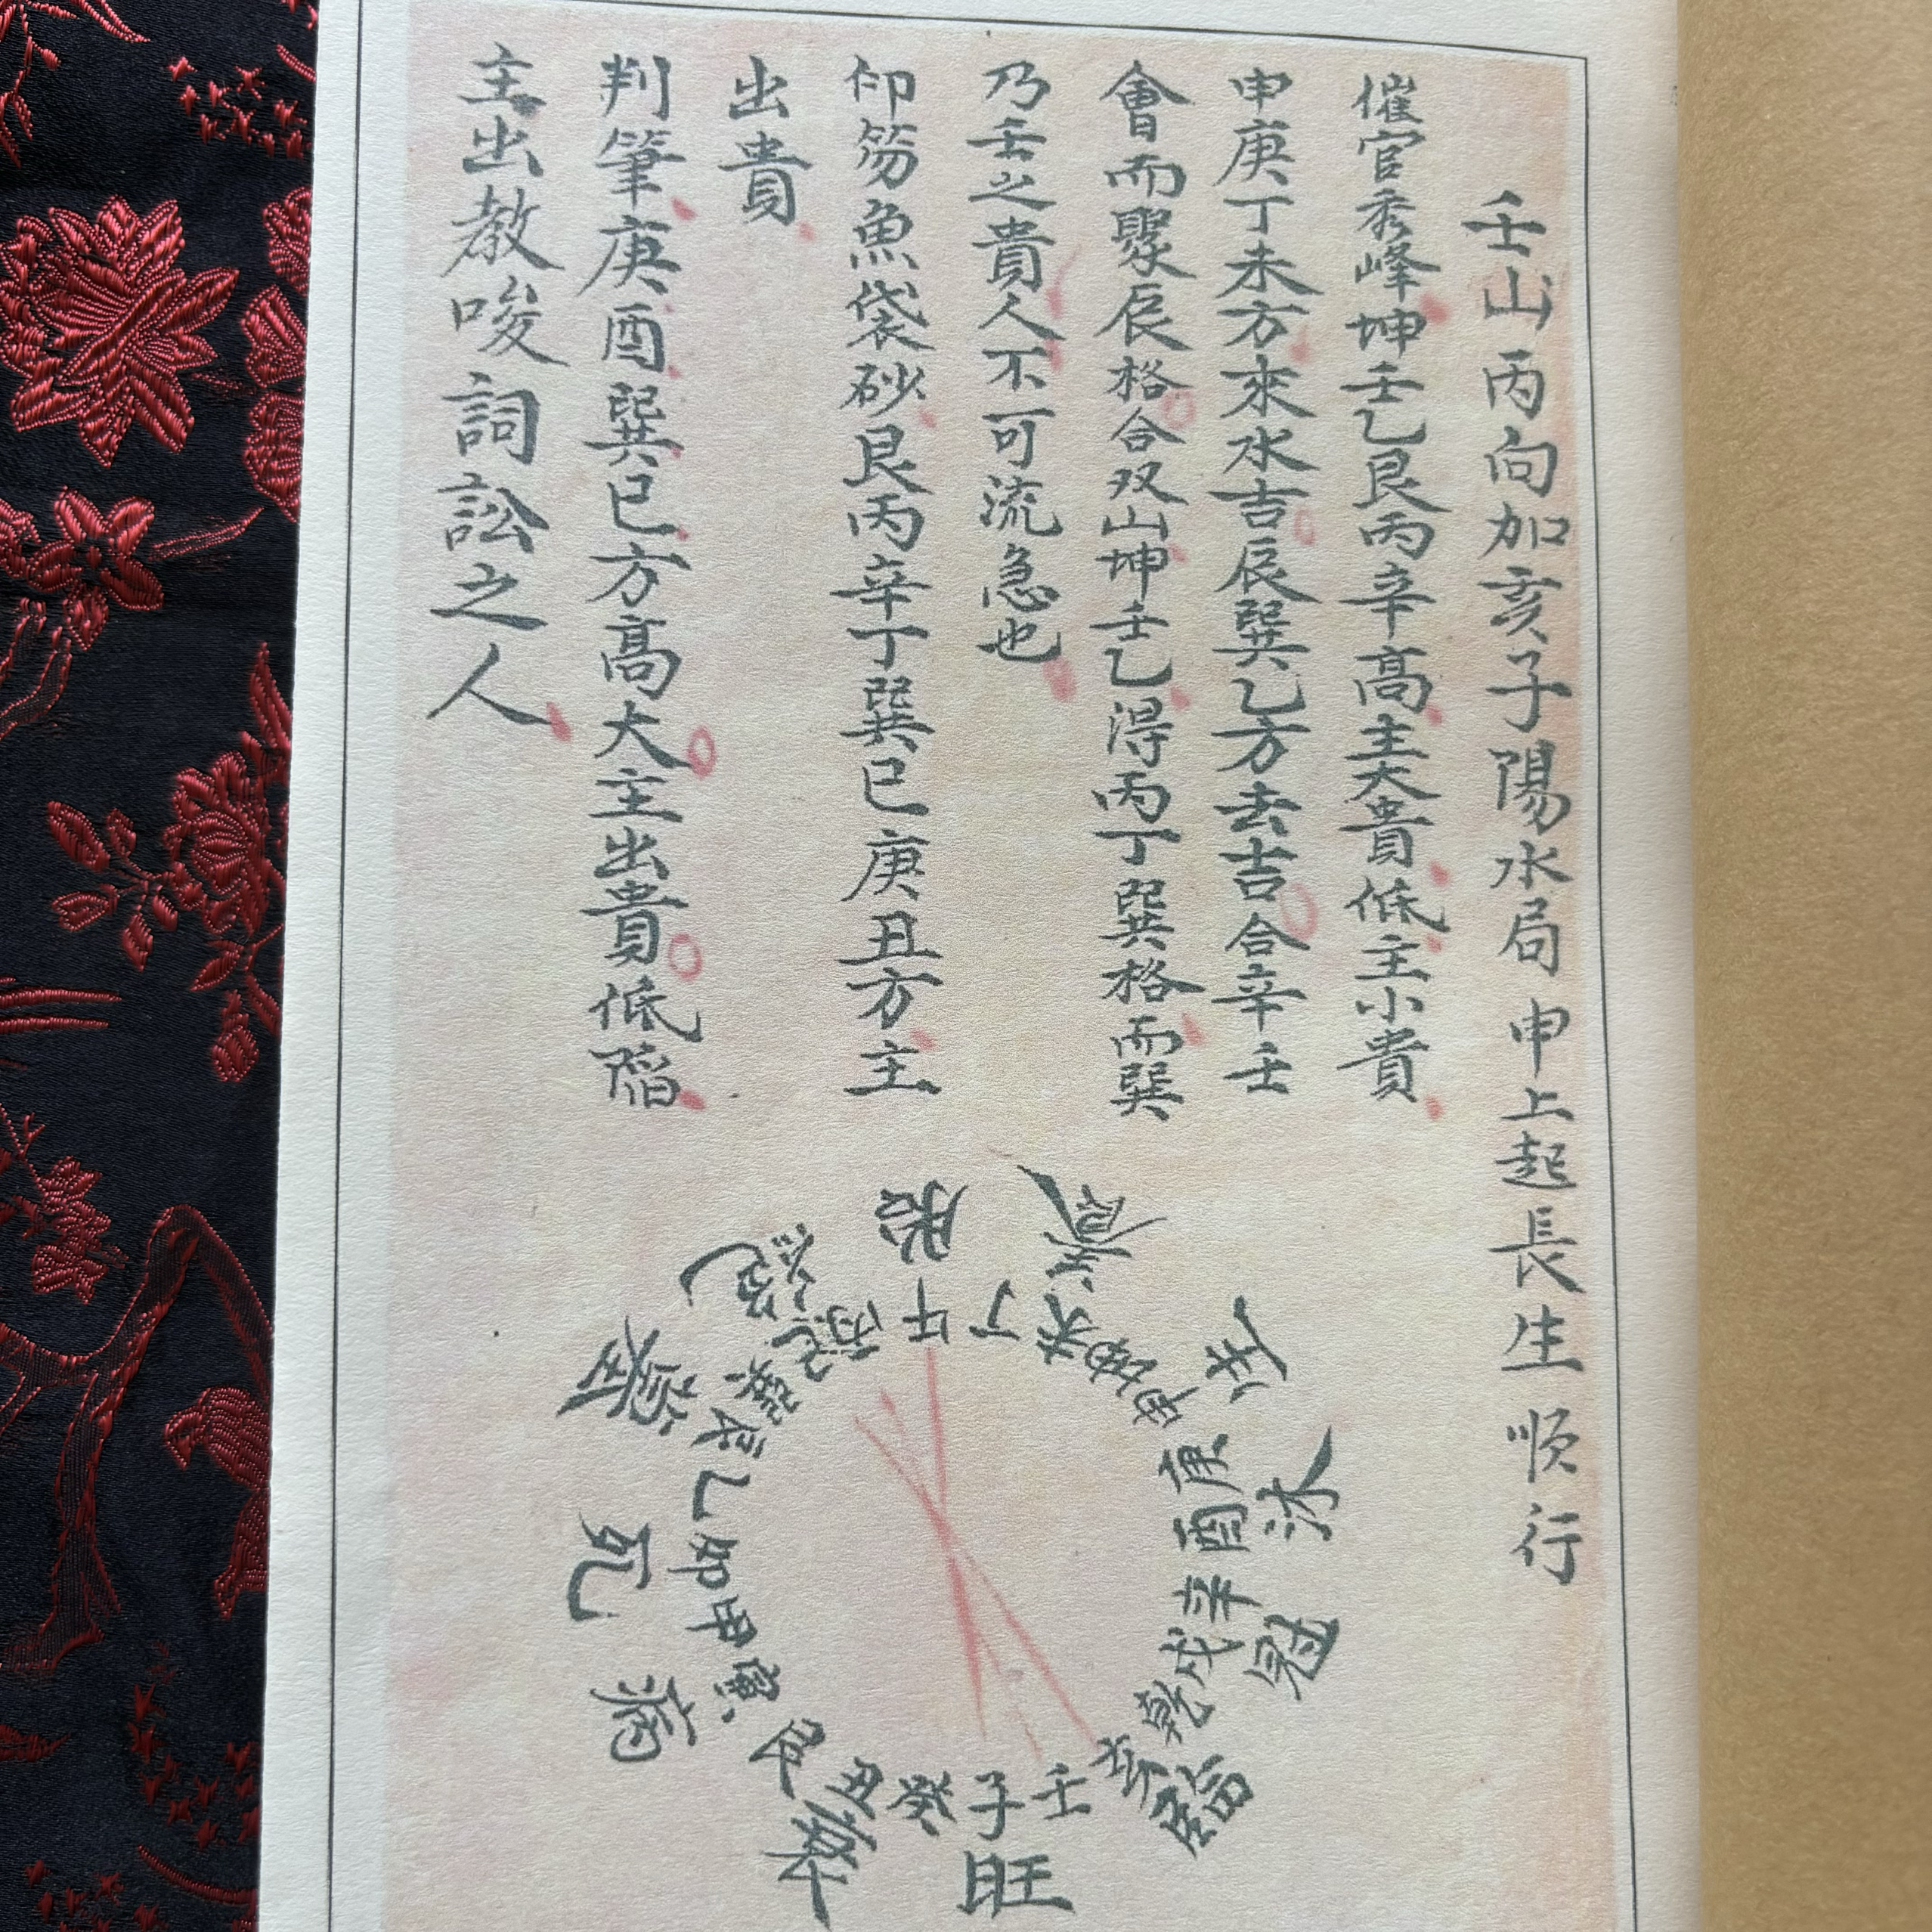 壬山丙向加亥子陽水局申上起長生順行
催官秀峰坤壬乙艮丙辛高主大貴低主小貴
申庚丁未方來水吉辰巽乙方去吉合辛壬
會而聚辰格合双山坤壬乙得丙丁巽格而巽
乃壬之貴人不可流急也
印笏魚袋砂艮丙辛丁巽巳庚丑方主
出貴
判筆庚酉巽巳方高大主出貴低陷
主出教唆詞訟之人
胎
養
生
沐
冠
臨
旺
衰
病
死
絕
午
丁
未
坤
申
庚
酉
辛
戌
乾
亥
壬
子
癸
丑
艮
寅
甲
卯
乙
辰
巽
巳
丙